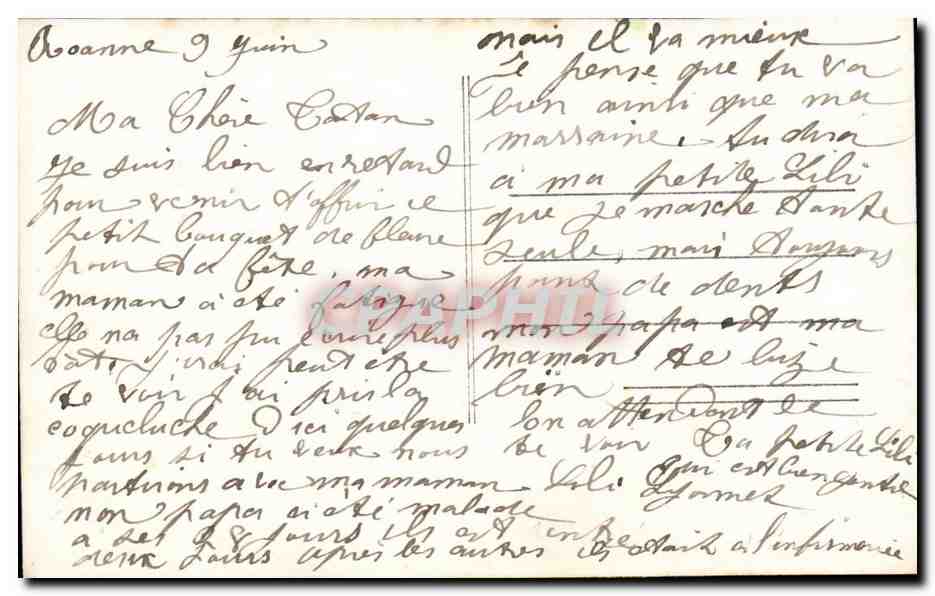 Roanne 9 Juin
Ma Chère Tatan
Je suis bien en retard
pour venir t'offrir ce
petit bouquet de blanc
pour ta fête, ma
maman a été fatigue
elle na pas pu ecrire plus
tât, j'irai peut etre
te voir J'ai pris la
coqueluche D'ici quelques
Jours si tu veux nous
partirons avec ma maman
mon papa a été malade
a ses 28 Jours ils est entré
deux Jours après les autres il etait a l'infirmerie
mais il va mieux
Je pense que tu va
bien ainsi que ma
marraine, tu dira
a ma petite Lili
que Je marche toute
seule, mais toujours
pas de dents
mon papa et ma
maman te bize
bien
En attendant de
te voir Ta petite Lili
qui est bien gentie
Lili
CPAPHIL